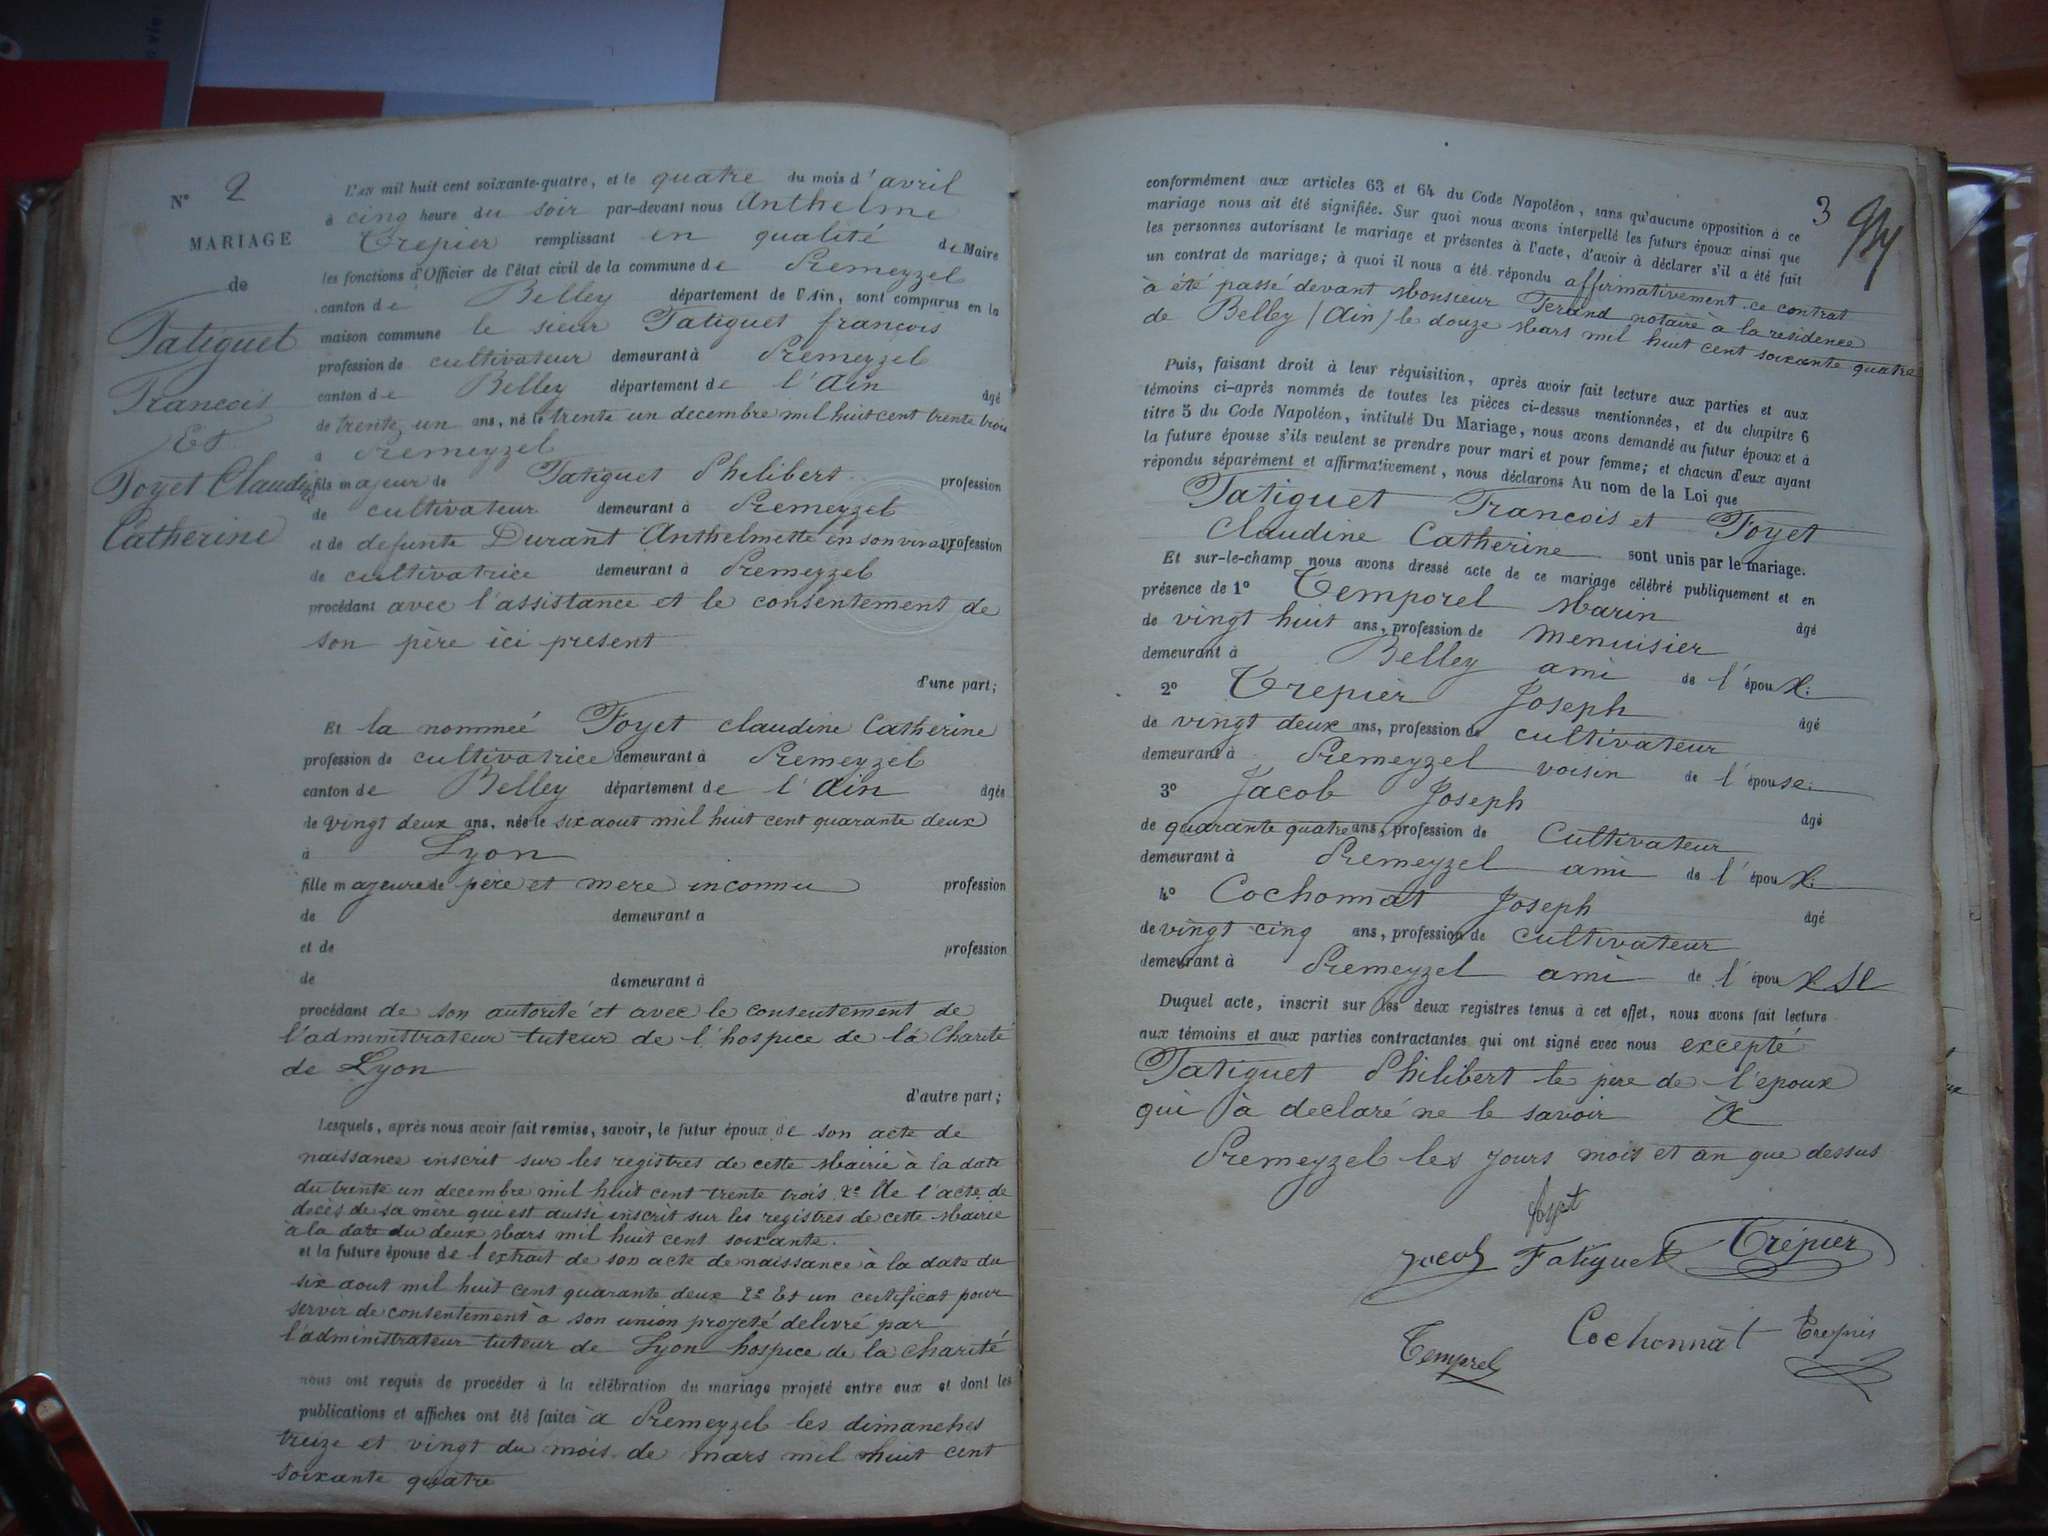 N° 2
MARIAGE
de
Fatiguet
François
Et
Foyet Claudine
Catherine
L'AN mil huit cent soixante-quatre, et le quatre du mois d'avril
à cinq heure du soir par-devant nous Anthelme
Trepier remplissant en qualité de Maire
les fonctions d'Officier de l'état civil de la commune de Premeyzel
canton de Belley département de l'Ain, sont comparus en la
maison commune le sieur Fatiguet françois
profession de cultivateur demeurant à Premeyzel
canton de Belley département de l'Ain âgé
de trente un ans, né le trente un decembre mil huit cent trente trois
à Premeyzel
fils majeur de Fatiguet Philibert profession
de cultivateur demeurant à Premeyzel
et de defunte Durant Anthelmette en son vivant profession
de cultivatrice demeurant à Premeyzel
procédant avec l'assistance et le consentement de
son père ici present
d'une part;
Et la nommeé Foyet Claudine Catherine
profession de cultivatrice demeurant à Premeyzel
canton de Belley département de l'Ain âgée
de vingt deux ans, née le six aout mil huit cent quarante deux
à Lyon
fille majeure de père et mere inconnu profession
de demeurant à
et de profession
de demeurant à
procédant de son autorité et avec le consentement de
l'administrateur tuteur de l'hospice de la Charité
de Lyon
d'autre part;
Lesquels, après nous avoir fait remise, savoir, le futur époux de son acte de
naissance inscrit sur les registres de cette Mairie à la date
du trente un decembre mil huit cent trente trois 2° De l'acte de
decès de sa mère qui est aussi inscrit sur les registres de cette Mairie
à la date du deux Mars mil huit cent soixante.
et la future épouse de l'extrait de son acte de naissance à la date du
six aout mil huit cent quarante deux 2° Et un certificat pour
servir de consentement à son union projeté delivré par
l'administrateur tuteur de Lyon hospice de la charité
nous ont requis de procéder à la célébration du mariage projeté entre eux et dont les
publications et affiches ont été faites à Premeyzel les dimanches
treize et vingt du mois de Mars mil huit cent
soixante quatre
3
conformément aux articles 63 et 64 du Code Napoléon, sans qu'aucune opposition à ce
mariage nous ait été signifiée. Sur quoi nous avons interpellé les futurs époux ainsi que
les personnes autorisant le mariage et présentes à l'acte, d'avoir à déclarer s'il a été fait
un contrat de mariage; à quoi il nous a été répondu affirmativement ce contrat
à été passé devant Monsieur Ferand notaire à la residence
de Belley (Ain) le douze Mars mil huit cent soixante quatre
Puis, faisant droit à leur réquisition, après avoir fait lecture aux parties et aux
témoins ci-après nommés de toutes les pièces ci-dessus mentionnées, et du chapitre 6
titre 5 du Code Napoléon, intitulé Du Mariage, nous avons demandé au futur époux et à
la future épouse s'ils veulent se prendre pour mari et pour femme; et chacun d'eux ayant
répondu séparément et affirmativement, nous déclarons Au nom de la Loi que
Fatiguet François et Foyet
Claudine Catherine sont unis par le mariage.
Et sur-le-champ nous avons dressé acte de ce mariage célébré publiquement et en
présence de 1° Temporel Marin âgé
de vingt huit ans, profession de menuisier
demeurant à Belley ami de l'époux.
2° Trepier Joseph âgé
de vingt deux ans, profession de cultivateur
demeurant à Premeyzel voisin de l'épouse.
3° Jacob Joseph âgé
de quarante quatre ans, profession de Cultivateur
demeurant à Premeyzel ami de l'époux.
4° Cochonnat Joseph âgé
de vingt cinq ans, profession de cultivateur
demeurant à Premeyzel ami de l'épouse
Duquel acte, inscrit sur les deux registres tenus à cet effet, nous avons fait lecture
aux témoins et aux parties contractantes qui ont signé avec nous excepté
Fatiguet Philibert le père de l'epoux
qui à declaré ne le savoir à
Premeyzel les jours mois et an que dessus
foyet
Jacob Fatiguet Trépier
Temporel Cochonnat Trepier